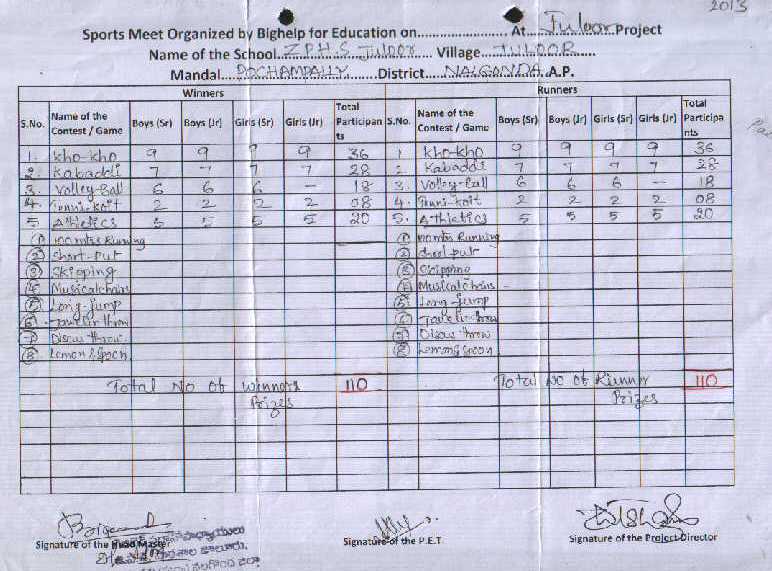 2013
Sports Meet Organized by Bighelp for Education on.......................... At Juloor Project
Name of the School Z.P.H.S Juloor Village JULOOR
Mandal POCHAMPALLY District NALGONDA A.P.
Winners Runners
S.No. Name of the Contest / Game Boys (Sr) Boys (Jr) Girls (Sr) Girls (Jr) Total Participants S.No. Name of the Contest / Game Boys (Sr) Boys (Jr) Girls (Sr) Girls (Jr) Total Participants
1. Kho-kho 9 9 9 9 36 1 Kho-kho 9 9 9 9 36
2. Kabaddi 7 7 7 7 28 2 Kabaddi 7 7 7 7 28
3. Volley-Ball 6 6 6 — 18 3. Volley-Ball 6 6 6 — 18
4. Tenni-koit 2 2 2 2 08 4. Tenni-koit 2 2 2 2 08
5 Athletics 5 5 5 5 20 5. Athletics 5 5 5 5 20
① 100 mtrs Running ① 100 mtrs Running
② Short-put ② Short put
③ Skipping ③ Skipping
④ Musical chairs ④ Musical chairs
⑤ Long-Jump ⑤ Long-Jump
⑥ Javelin throw ⑥ Javelin throw
⑦ Discus throw ⑦ Discus throw
⑧ Lemon & Spoon ⑧ Lemon & Spoon
Total No of Winners 110 Total No of Runner 110
Prizes Prizes
Signature of the Head Master Signature of the P.E.T. Signature of the Project Director